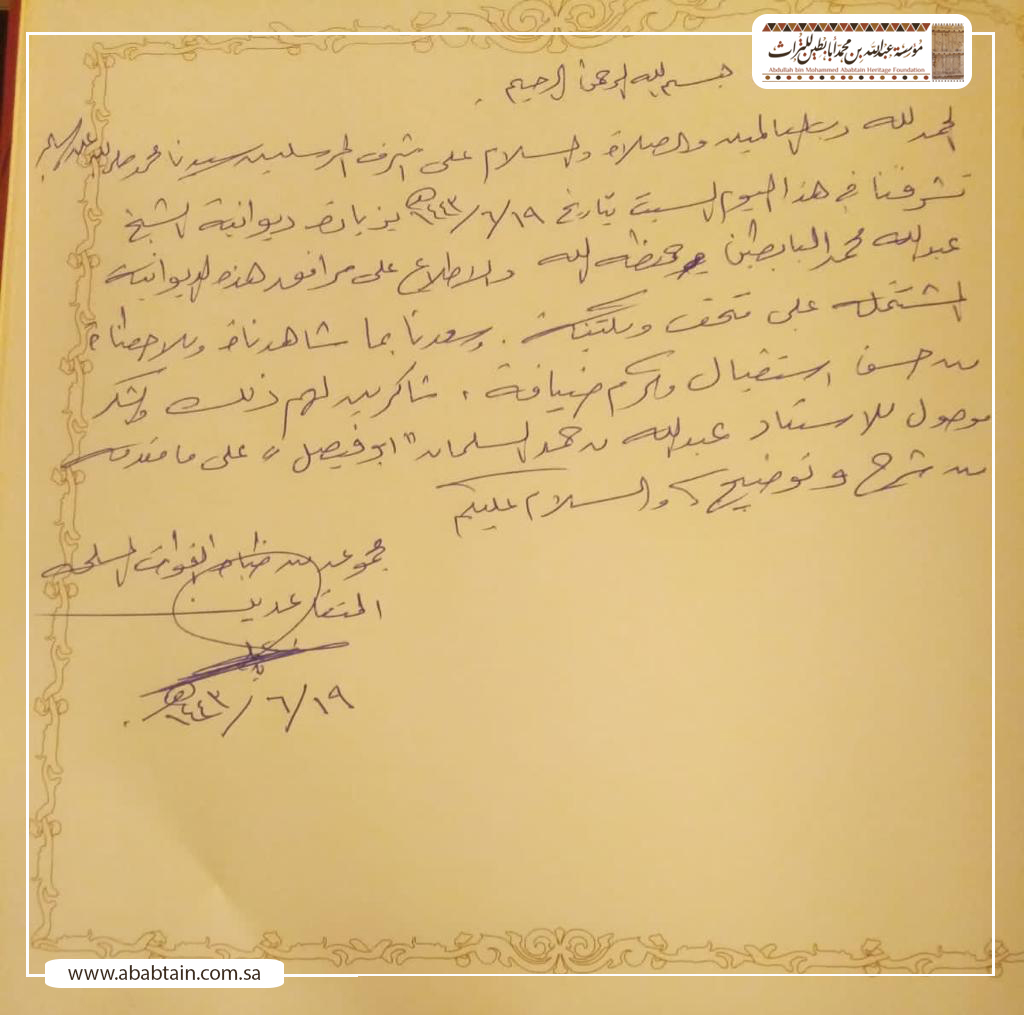 مؤسسة عبدالله بن محمد أبابطين للتراث
Abdullah bin Mohammed Ababtain Heritage Foundation
بسم الله الرحمن الرحيم
الحمد لله رب العالمين والصلاة والسلام على اشرف المرسلين سيدنا محمد صلى الله عليه وسلم
تشرفنا في هذا اليوم السبت بتاريخ ١٩/٦/١٤٤٣هـ بزيارة ديوانية الشيخ
عبدالله محمد البابطين حفظه الله والاطلاع على مرافق هذه الديوانية
المشتملة على متحف ومكتبة . وسعدنا بما شاهدناه ولاحظناه
من حسن استقبال وكرم ضيافة ، شاكرين لهم ذلك والشكر
موصول للاستاذ عبدالله بن حمد السلمان "ابو فيصل" على ما قدمه
من شرح وتوضيح ،، والسلام عليكم
مجموعة من ضباط القوات المسلحة
المتقاعدين
١٩/٦/١٤٤٣هـ
www.ababtain.com.sa